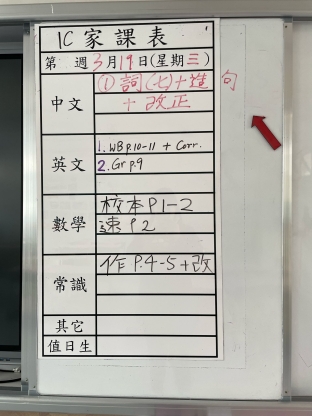 1C 家課表
第 週 3月19日(星期三)
中文 ①詞(七)+造句
+ 改正
英文 1. WB p.10-11 + Corr.
2. Gr p.9
數學 校本 P1-2
速 P2
常識 作 P.4-5 + 改
其它
值日生